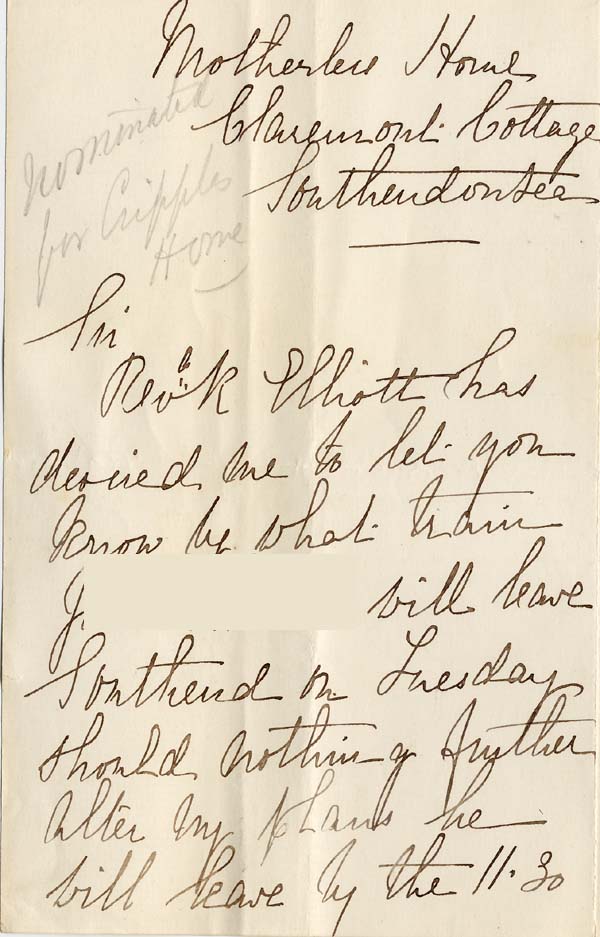 Motherless Home
Claremont Cottage
Southendonsea
nominated
for Cripples
Home
Sir
Revd K Elliott has
desired me to let you
know by what train
J.
will leave
Southend on Tuesday
should nothing further
alter my plans he
will leave by the 11.30